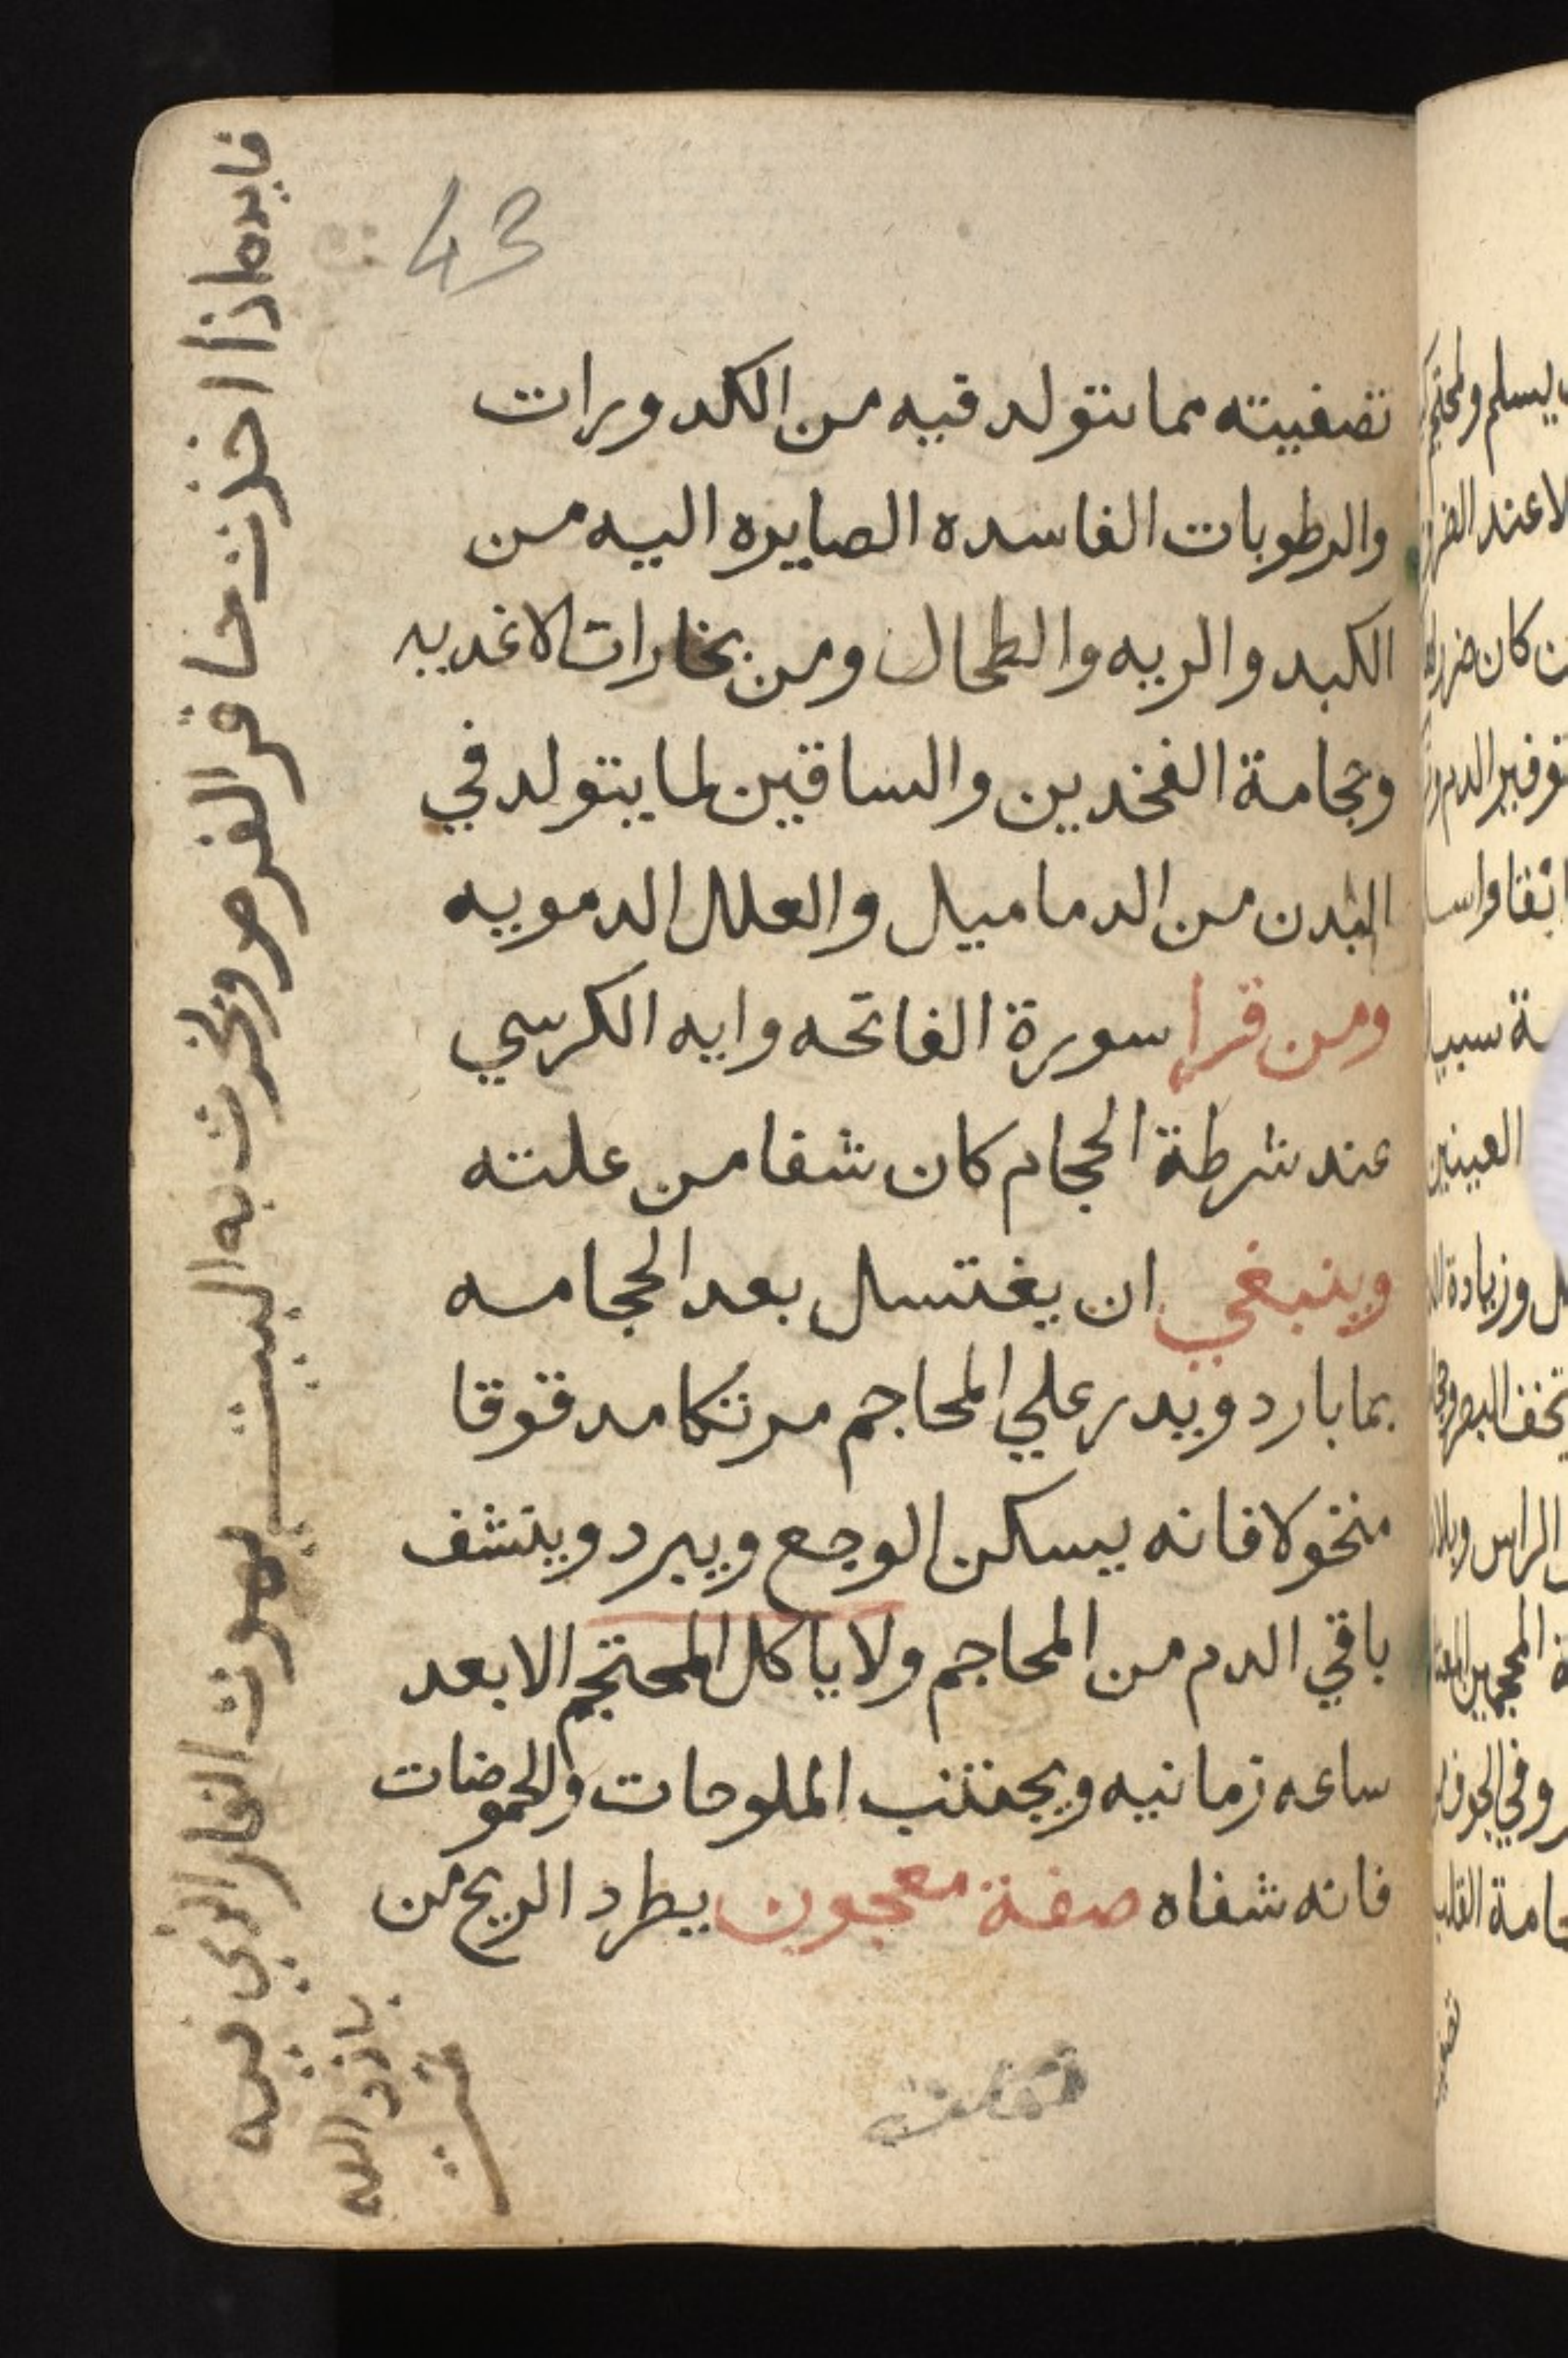 43
تصفيته مما يتولد فيه من الكدورات
والرطوبات الفاسده الصايره اليه من
الكبد والريه والطحال ومن بخارات الاغديه
وحجامة الفخدين والساقين لما يتولد في
البدن من الدماميل والعلل الدمويه
ومن قرا سورة الفاتحه وايه الكرسي
عند شرطة الحجام كان شفا من علته
وينبغي ان يغتسل بعد الحجامه
بما بارد ويدر علي المحاجم مرتكا مدقوقا
منخولا فانه يسكن الوجع ويبرد وينشف
باقي الدم من المحاجم ولا ياكل المحتجم الا بعد
ساعه زمانيه ويجتنب الملوحات والحموضات
فانه شفاه صفة معجون يطرد الريح من
فايده اذا اخذت حافر الفرص وبخرت به البيت يموت الفار الذي فيه
باذن الله